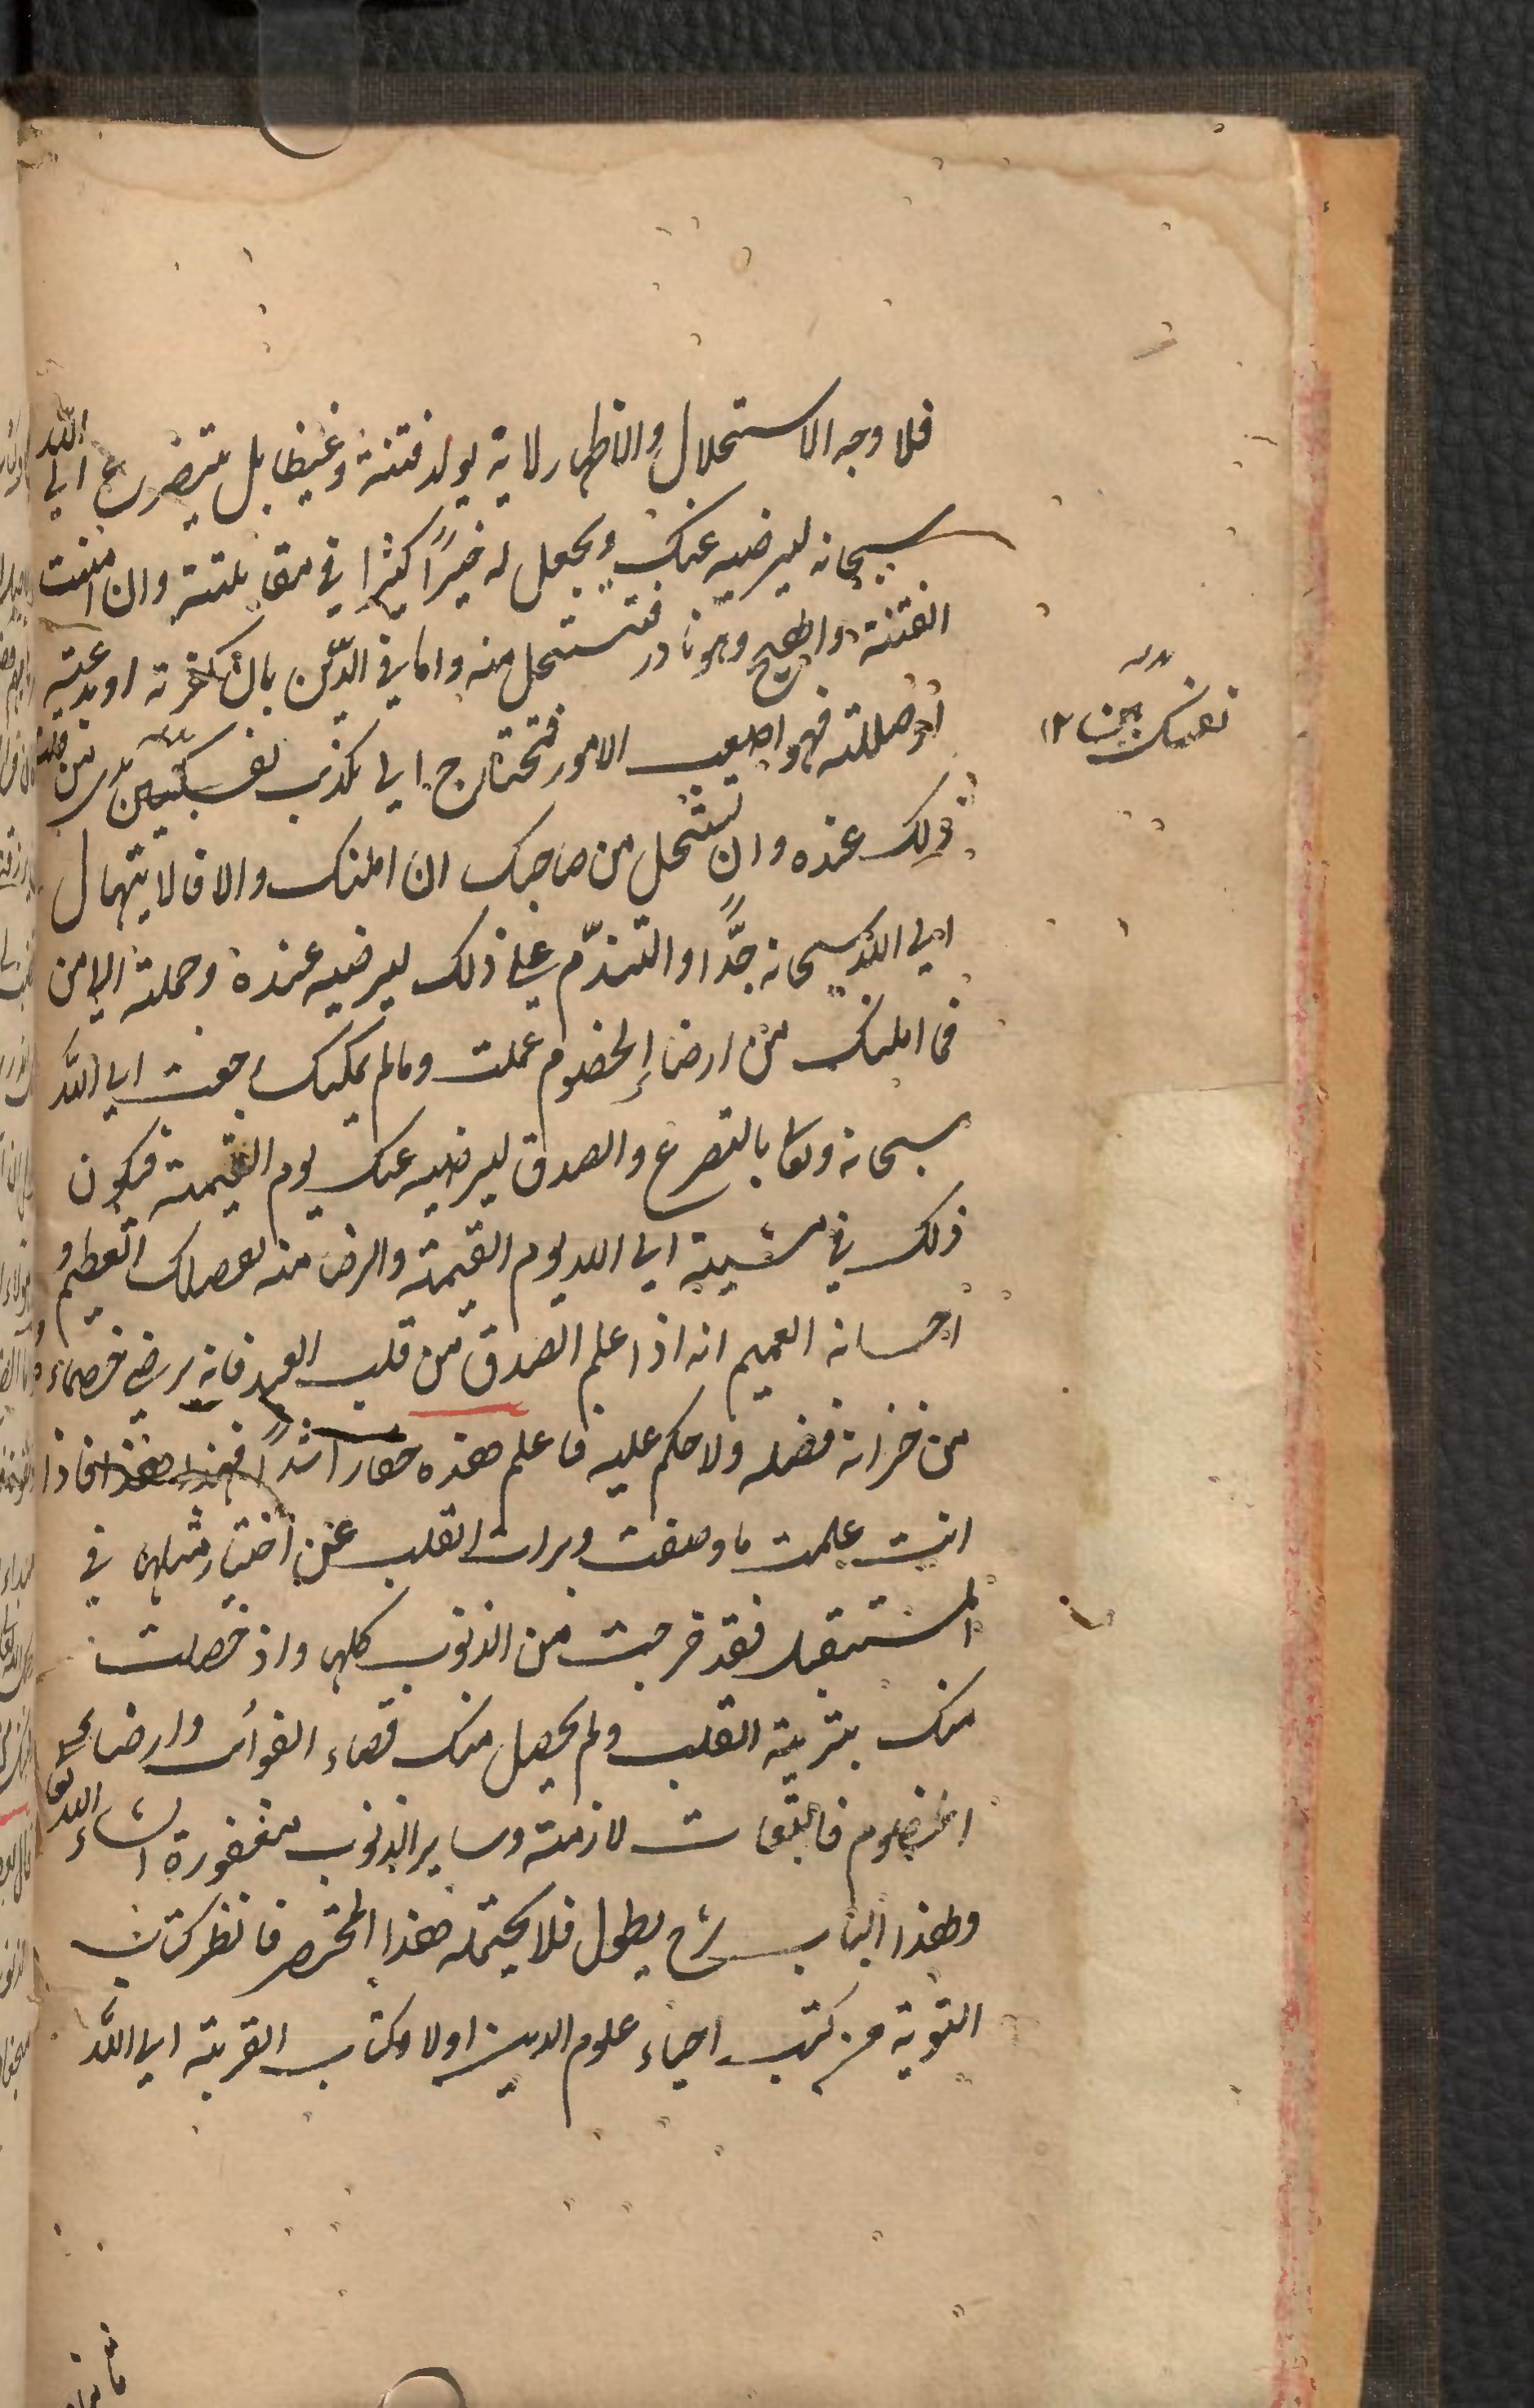 فلا وجه الاستحلال والاظهار لانه يولد فتنة وغيظا بل يتضرع الى الله
سبحانه ليرضيه عنك ويجعل له خيرًا كثيرا في مقابلته وان امنت
الفتنة والهيج وهو نادر فتستحل منه واما في الدّين بان كفرته او بدعته
او ضللته فهو اصعب الامور فتحتاج الى تكذيب نفسك بين يدى من قلت
ذلك عنده وان تستحل من صاحبك ان امكنك والا فالابتهال
الى الله سبحانه جدًّا والتندّم على ذلك ليرضيه عنده وجملة الامر
فما امكنك من ارضاء الخصوم عملت وما لم يمكنك رجعت الى الله
سبحانه وتعا بالتضرع والصدق ليرضيه عنك يوم القيمة فيكون
ذلك في مشية الى الله يوم القيمة والرضا منه لفضلك العظيم و
احسانه العميم انه اذا علم الصدق من قلب العبد فانه يرضى خصماءه
من خزانة فضله ولا حكم عليه فاعلم هذه حقا راشدًا فهذا هذا فاذا
انت علمت ما وصفت وبرات القلب عن اختيار مثلها في
المستقبل فقد خرجت من الذنوب كلها واذ حصلت
منك بتربية القلب ولم يحصل منك قضاء الفوائت وارضاء
الخصوم فالتبعات لازمة وساير الذنوب مغفورة انشاء الله تعا
ولهذا الباب شرح يطول فلا يحتمله هذا المختصر فانظر كتاب
التوبة من كتب احياء علوم الدين اولا وكتاب القربة الى الله
نفسك بين ١٢